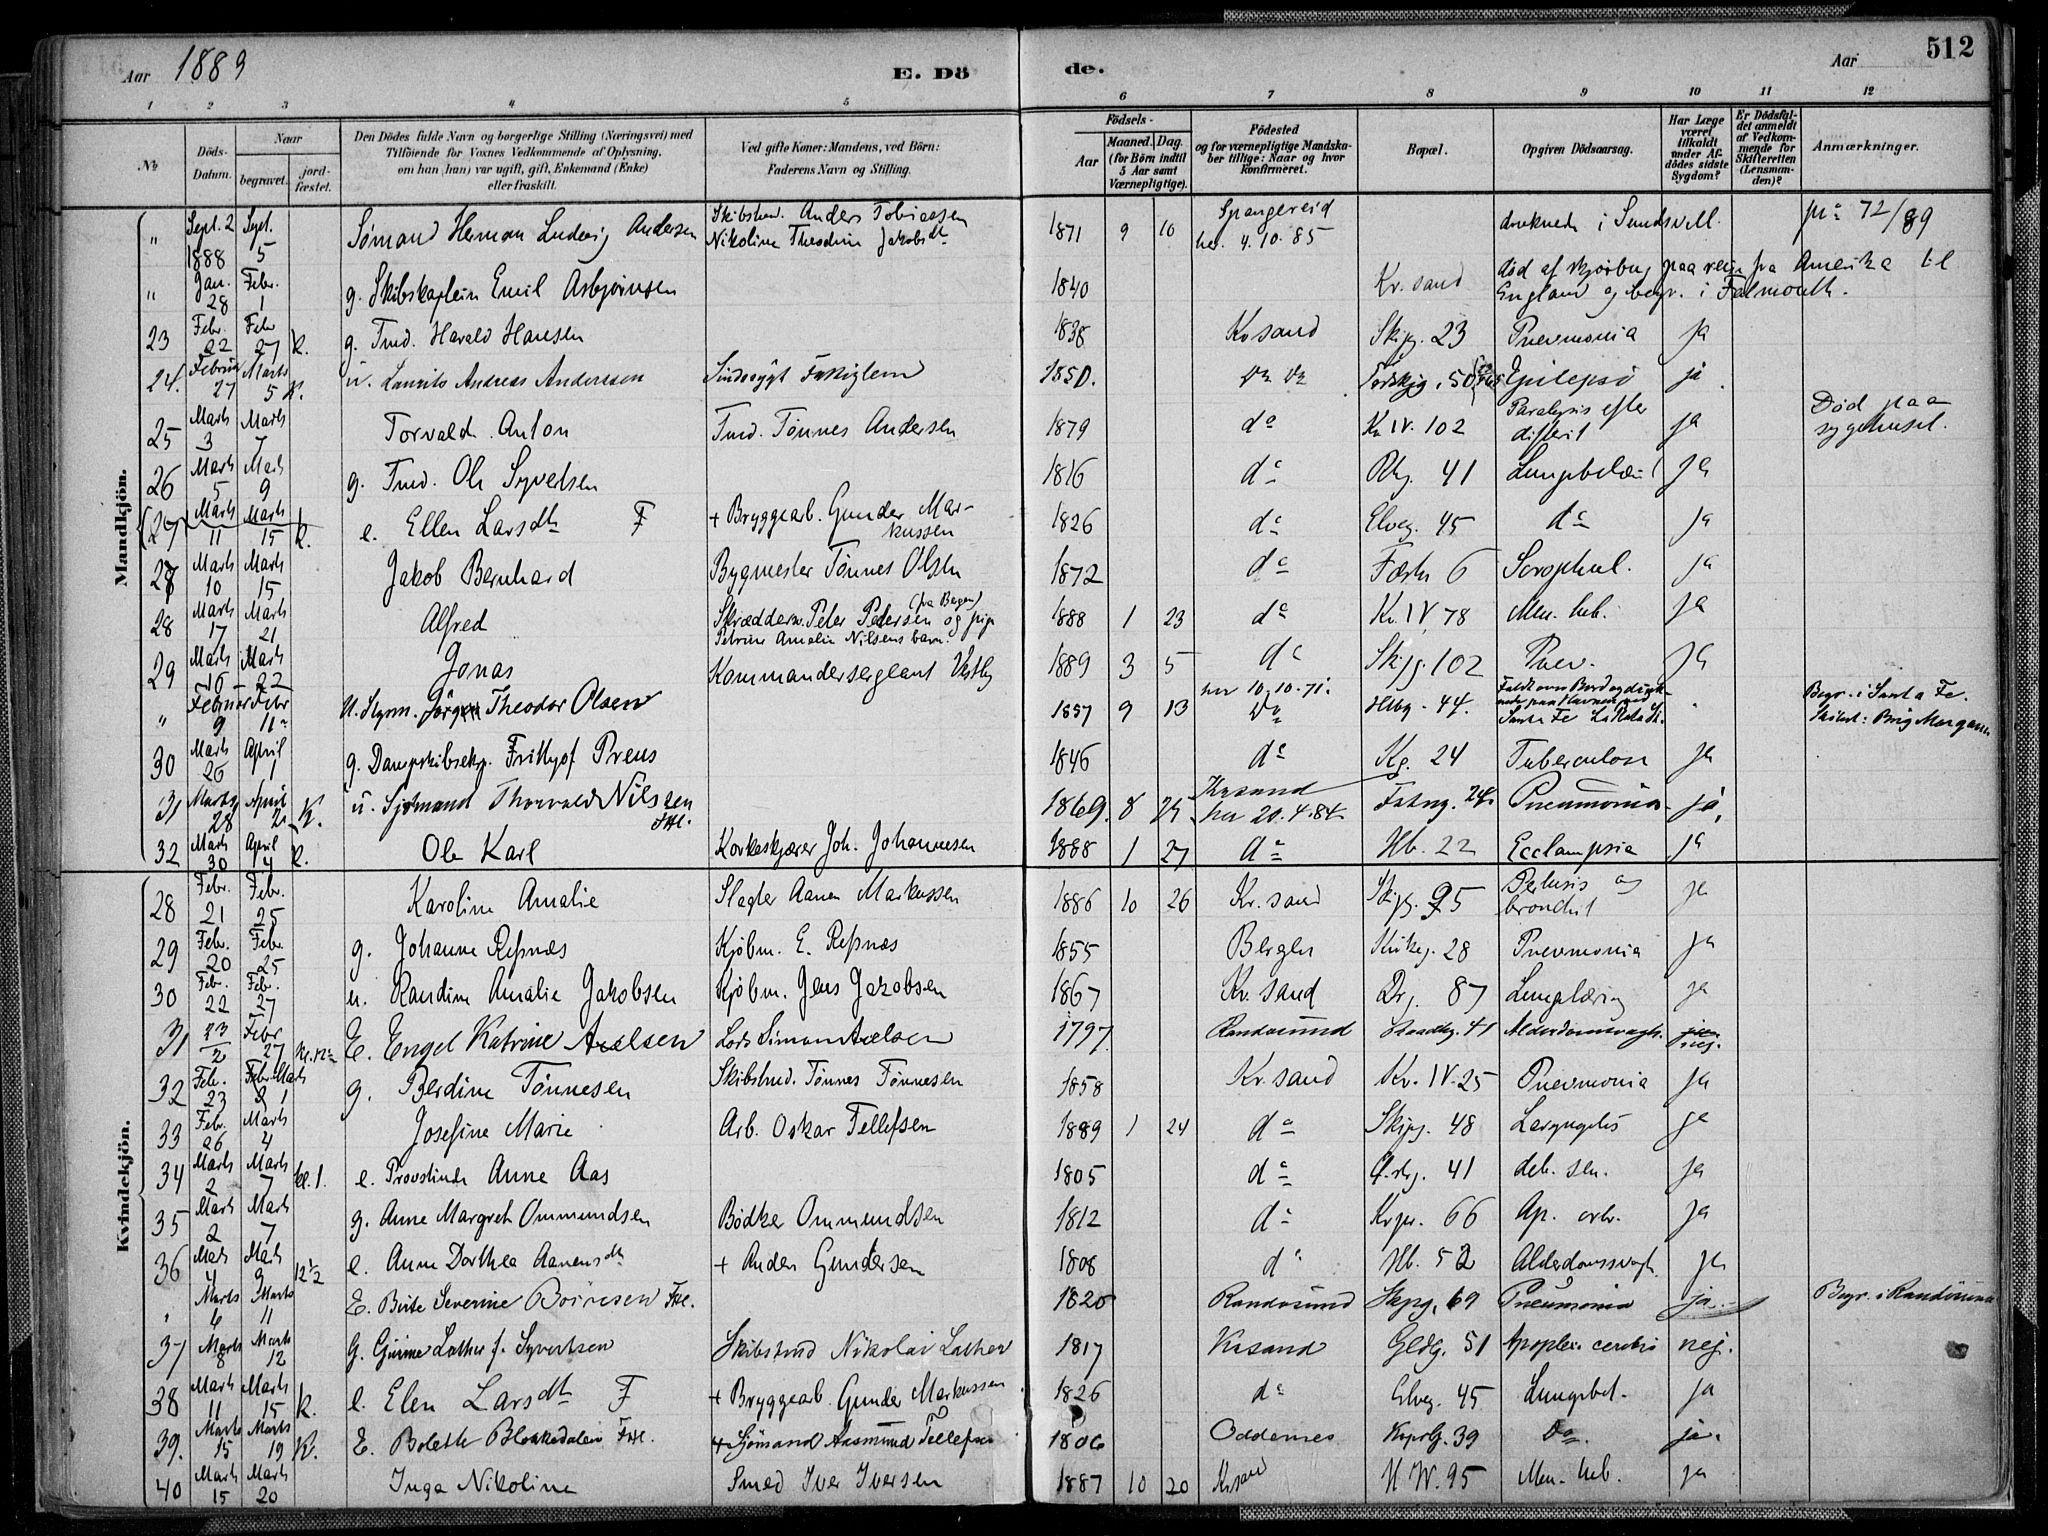 Aar 1889 E. Dö de. Aar 512
1 2 3 4 5 6 7 8 9 10 11 12
No
Döds-Datum.
Naar
begravet.
jord-fæstet.
Den Dödes fulde Navn og borgerlige Stilling (Næringsvei) med
Tilföiende for Voxnes Vedkommende af Oplysning,
om han (hun) var ugift, gift, Enkemand (Enke)
eller fraskilt.
Ved gifte Koner: Mandens, ved Börn:
Faderens Navn og Stilling.
Födsels-
Aar
Maaned. Dag.
(for Börn indtil
5 Aar samt
Værnepligtige).
Födested
og for værnepligtige Mandska-
ber tillige: Naar og hvor
konfirmeret.
Bopæl.
Opgiven Dödsaarsag.
Har Læge
været
tilkaldt
under Af-
dödes sidste
Sygdom?
Er Dödsfal-
det anmeldt
af Vedkom-
mende for
Skifteretten
(Lensman-
den)?
Anmærkninger.
Mandkjön.
" Sept. 2 1888 Sept. 5 Sömand Herman Ludvig Andersen Skibstmd. Anders Tobiassen Nikoline Theodine Jakobsdtr 1871 9 10 Spangereid 4.10.85 druknede i Sundsvall. 72/89
" Jan. 28 Febr. 1 g. Skibskaptein Emil Asbjørnsen 1840 Kr. sand död af skjörbug paa reise fra Amerika til England og begr. i Falmouth.
23 Febr. 22 Febr 27 K. g. Tmd. Harald Hansen 1838 Krsand Skipg. 23 Pnevmonia ja
24. Februar 27 Marts 5 K. u. Laurits Andreas Andersen Sindssygt Fattiglem 1850. Do Do 50 Epilepsi ja
25 Marts 3 Marts 7 Torvald Anton Tmd. Tönnes Andersen 1879 do Kv. IV. 102 Paralysis efter difterit ja Död paa sygehuset.
26 Marts 5 Marts 9 g. Tmd. Ole Syvertsen 1816 do 41 ja
(27) Marts 11 Marts 15 K. e. Ellen Larsdtr F + Bryggearb. Gunder Markussen 1826 do Elveg. 45 do ja
27 Marts 10 Marts 15 Jakob Bernhard Bygmester Tönnes Olsen 1872 do Færder 6 Scrophul. ja
28 Marts 17 Marts 21 Alfred Skræddersv. Peter Pedersen (fra Bergen) og pige Petrine Amalie Nilsens barn. 1888 1 23 do Kv. IV 78 Men. tub. ja
29 Marts 16 Marts 22 Jonas Kommandersergeant Vestby 1889 3 5 do Skipg. 102 Pnev. ja
" Februar 9 Febr 11 U. Styrm. Jörgen Theodor Olsen 1857 9 13 her 10.10.71. Do 44. Faldt over Bord og druknede paa Havnen ved Santa Fe La Plata Begr. i Santa Fe. Skibet: Brig Morgan
30 Marts 26 April 1 g. Dampskibsexp. Frithjof Preus 1846 do Kg. 24 Tuberculose ja
31 Marts 28 April 2 K. u. Sjömand Thorvald Nilssen FHl. 1869. 8 25. Krsand her 20.4.84. Fstng. 24. Pneumonia ja.
32 Marts 30 April 4 K. Ole Karl Korkeskjærer Joh. Johannesen 1888 1 27 do Hb. 22 Ecclampsia ja
Kvindekjön.
28 Febr. 21 Febr. 25 Karoline Amalie Slagter Aanen Markussen 1886 10 26 Kr. sand Skipg. 95 Pertusis og bronchit ja
29 Febr. 20 Febr. 25 g. Johanne Refsnæs Kjöbm. E. Refsnæs 1855 Bergen 28 Pnevmonia ja
30 Febr. 22 Febr. 27 u. Randine Amalie Jakobsen Kjöbm. Jens Jacobsen 1867 Kr. sand Drg. 87 Lungetæring ja
31 23/2 Febr 27 E. Engel Katrine Axelsen Lods Simon Axelsen 1797. Randösund Strandg. 41 Alderdomssvagh. nej.
32 Febr. 23 Marts 1 g. Berdine Tönnesen Skibstmd. Tönnes Tönnesen 1858 Kr. sand Kv. IV. 25 Pnevmonia ja
33 Febr. 26 Marts 4 Josefine Marie Arb. Oskar Tellefsen 1889 1 24 do Skipg. 48 Laryngitis ja
34 Marts 2 Marts 7 kl. 1. e. Provstinde Anne Aas 1805 do 41 deb. sen. ja
35 Marts 2 Marts 7 g. Anne Margreth Ommundsen Bödker Ommundsen 1812 do 66 Ap. cerbr. ja
36 Marts 4 Marts 9 12½ e. Anne Dorthea Aanensdtr + Anders Gundersen 1808 do Hb. 52 Alderdomssvagh. ja
" Marts 6 Marts 11 E. Birte Severine Börresen FHl. 1820 Randösund Skpg. 69 Pneumonia ja. Begr. i Randösund
37 Marts 8 Marts 12 G. Gurine Lother f. Syvertsen Skibstmd Nikolai Lother 1817 Krsand Gldg. 51 Apoplex. cerebri nej.
38 Marts 11 Marts 15 K. e. Elen Larsdtr F + Bryggearb. Gunder Markussen 1826 do Elveg. 45 Lungebet. ja
39. Marts 15 Marts 19 K. E. Bolette Blokkedalen FHl. + Sjömand Aasmund Tellefsen 1806 Oddernes 39 Do. ja.
40 Marts 15 Marts 20 Inga Nikoline Smed Iver Iversen 1887 10 20 Krsand 95 Men. tub. ja